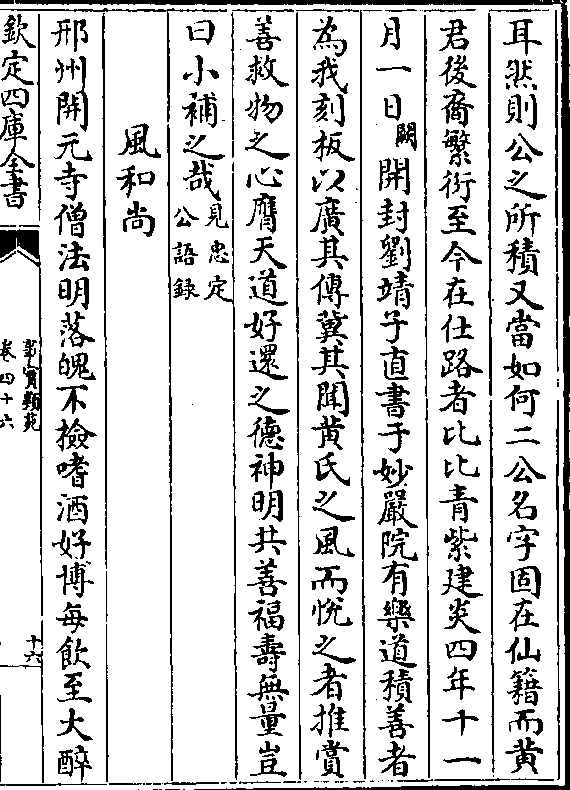 耳然則公之所積又當如何二公名字固在仙籍而黄
君後裔繁衍至今在仕路者比比青紫建炎四年十一
月一日闕開封劉靖子直書于妙嚴院有樂道積善者
為我刻板以廣其傳冀其聞黄氏之風而恱之者推賞
善救物之心膺天道好還之德神明共善福壽無量豈
曰小補之哉見忠定公語録
風和尚
邢州開元寺僧法明落魄不撿嗜酒好博每飲至大醉
欽定四庫全書
事實類苑
卷四十六
十六